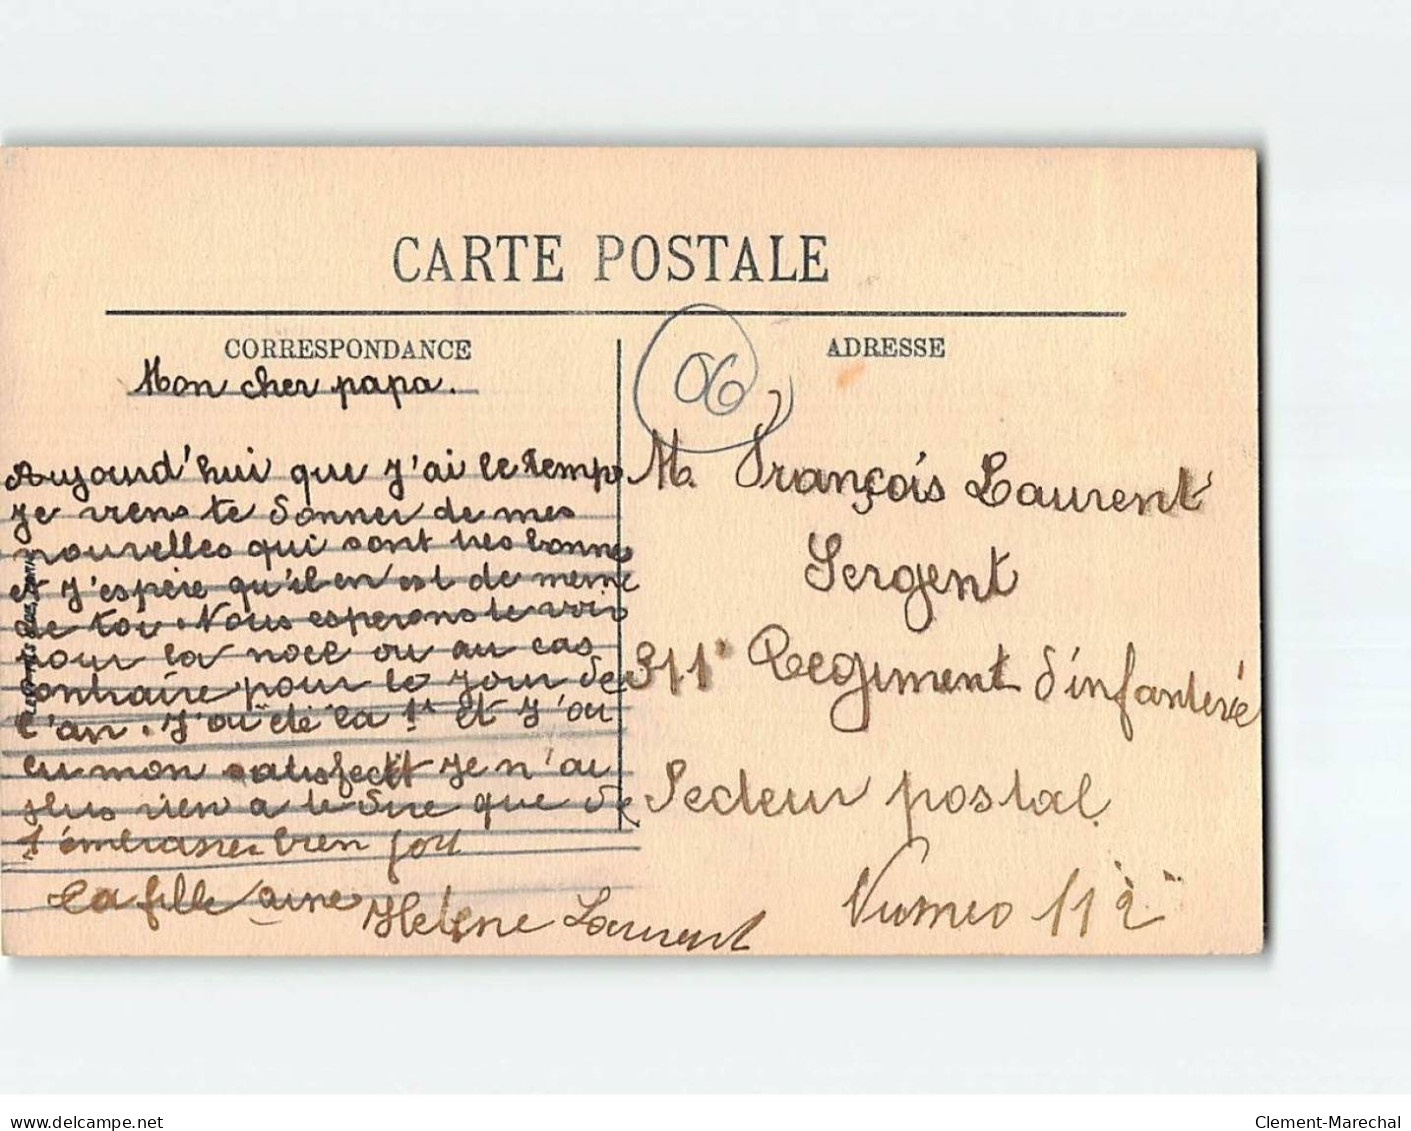 CARTE POSTALE
CORRESPONDANCE
ADRESSE
06
Mon cher papa.
Aujourd'hui que j'ai le temp
je viens te donner de mes
nouvelles qui sont tres bonne
et j'espère qu'il en est de meme
de toi. Nous esperons te voir
pour la noel ou au cas
contraire pour le jour de
l'an. J'ai été la 1e et j'ai
eu mon satisfecit je n'ai
plus rien a te dire que de
t'embrasser bien fort
ta fille ainé
Helene Laurent
M. François Laurent
Sergent
311e Regiment d'infanterie
Secteur postal
Numeo 112
delcampe.net
Clement-Marechal